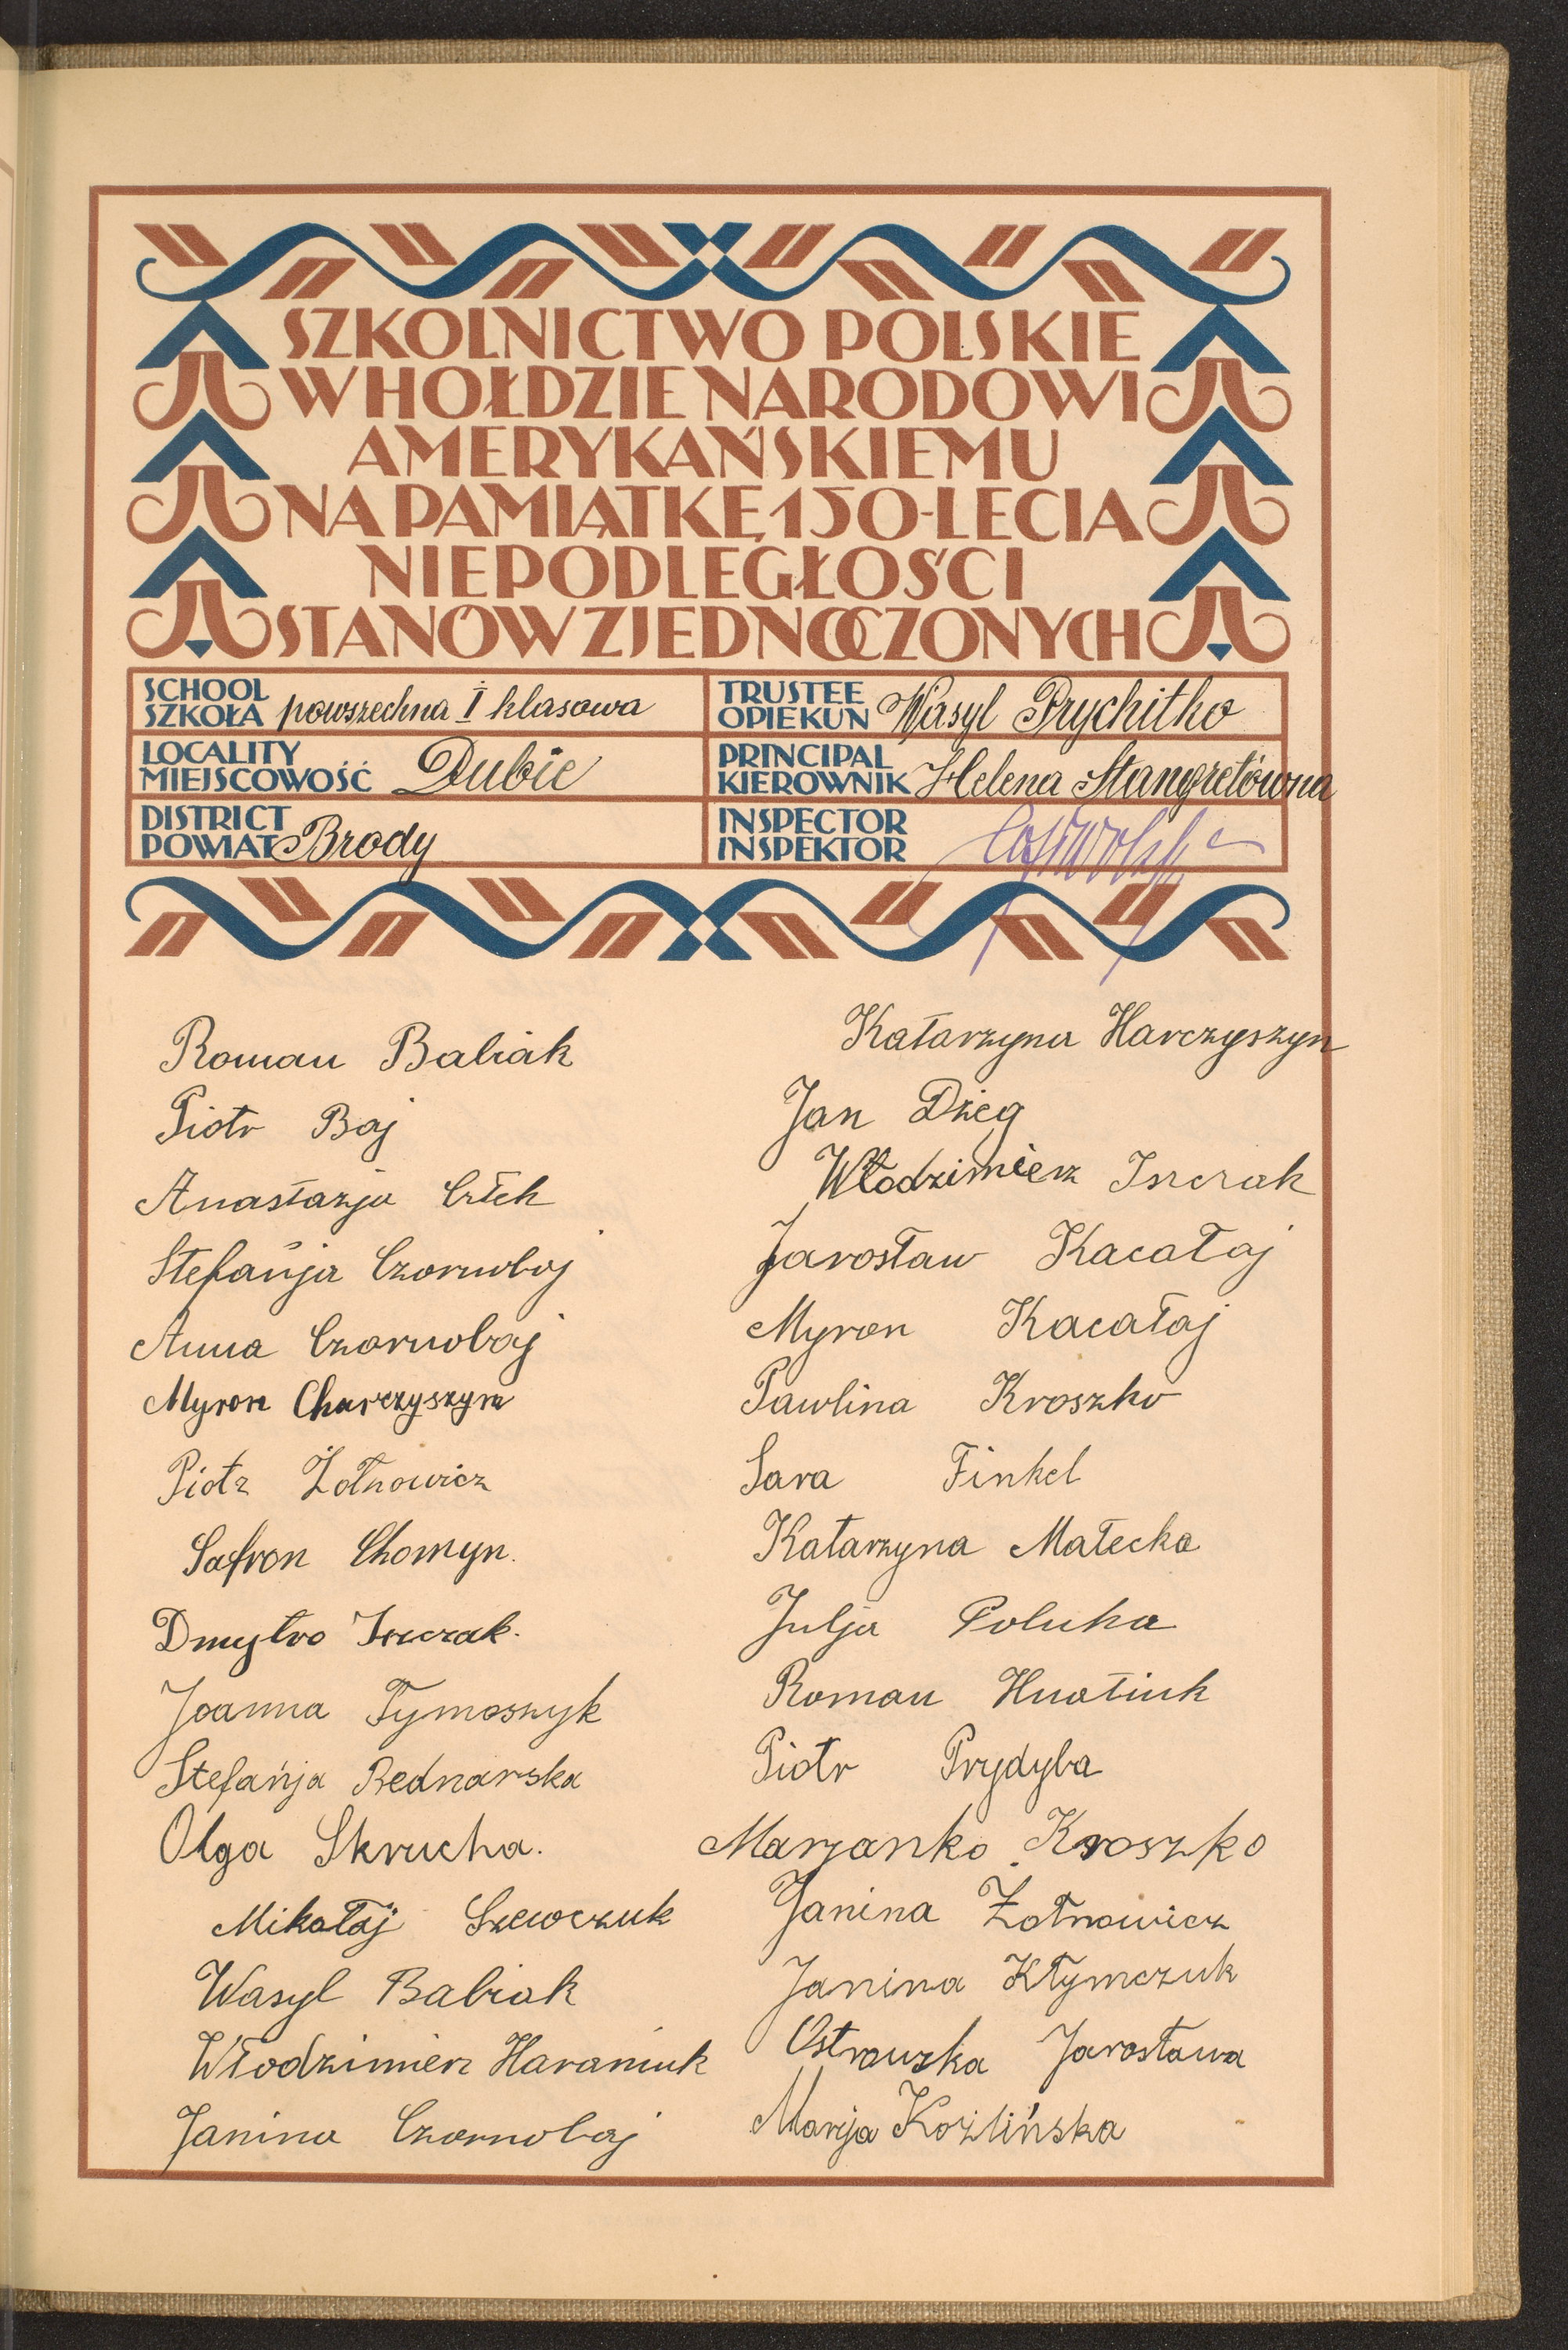 SZKOLNICTWO POLSKIE
W HOŁDZIE NARODOWI
AMERYKAŃSKIEMU
NA PAMIĄTKĘ 150-LECIA
NIEPODLEGŁOŚCI
STANÓW ZJEDNOCZONYCH
SCHOOL
SZKOŁA powszechna I klasowa
TRUSTEE
OPIEKUN Wasyl Prychitko
LOCALITY
MIEJSCOWOŚĆ Dubie
PRINCIPAL
KIEROWNIK Helena Stangretówna
DISTRICT
POWIAT Brody
INSPECTOR
INSPEKTOR
Roman Babiak
Piotr Baj
Anastazja
Stefańja Czornoboj
Anna Czornobaj
Myron Charczyszyn
Piotr Żołnowicz
Safron Chomyn.
Dmytro Irzczak.
Joanna Tymoszyk
Stefańja Bednarska
Olga Skrucha.
Mikołaj Szewczuk
Wasyl Babiak
Włodzimierz Haraniuk
Janina Czornobaj
Katarzyna Harczyszyn
Jan Dżeg
Włodzimierz Irzczak
Jarosław Kacałaj
Myron Kacałaj
Pawlina Kroszko
Sara Finkel
Katarzyna Małecka
Julja Poluha
Roman Hnatiuk
Piotr Prydyba
Marjanko Kroszko
Janina Żołnowicz
Janina Kłymczuk
Ostrowska Jarosława
Marja Koźlińska